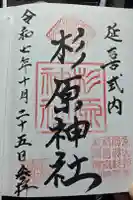 延喜式内
杉原神社
令和七年十月二十五日参拝